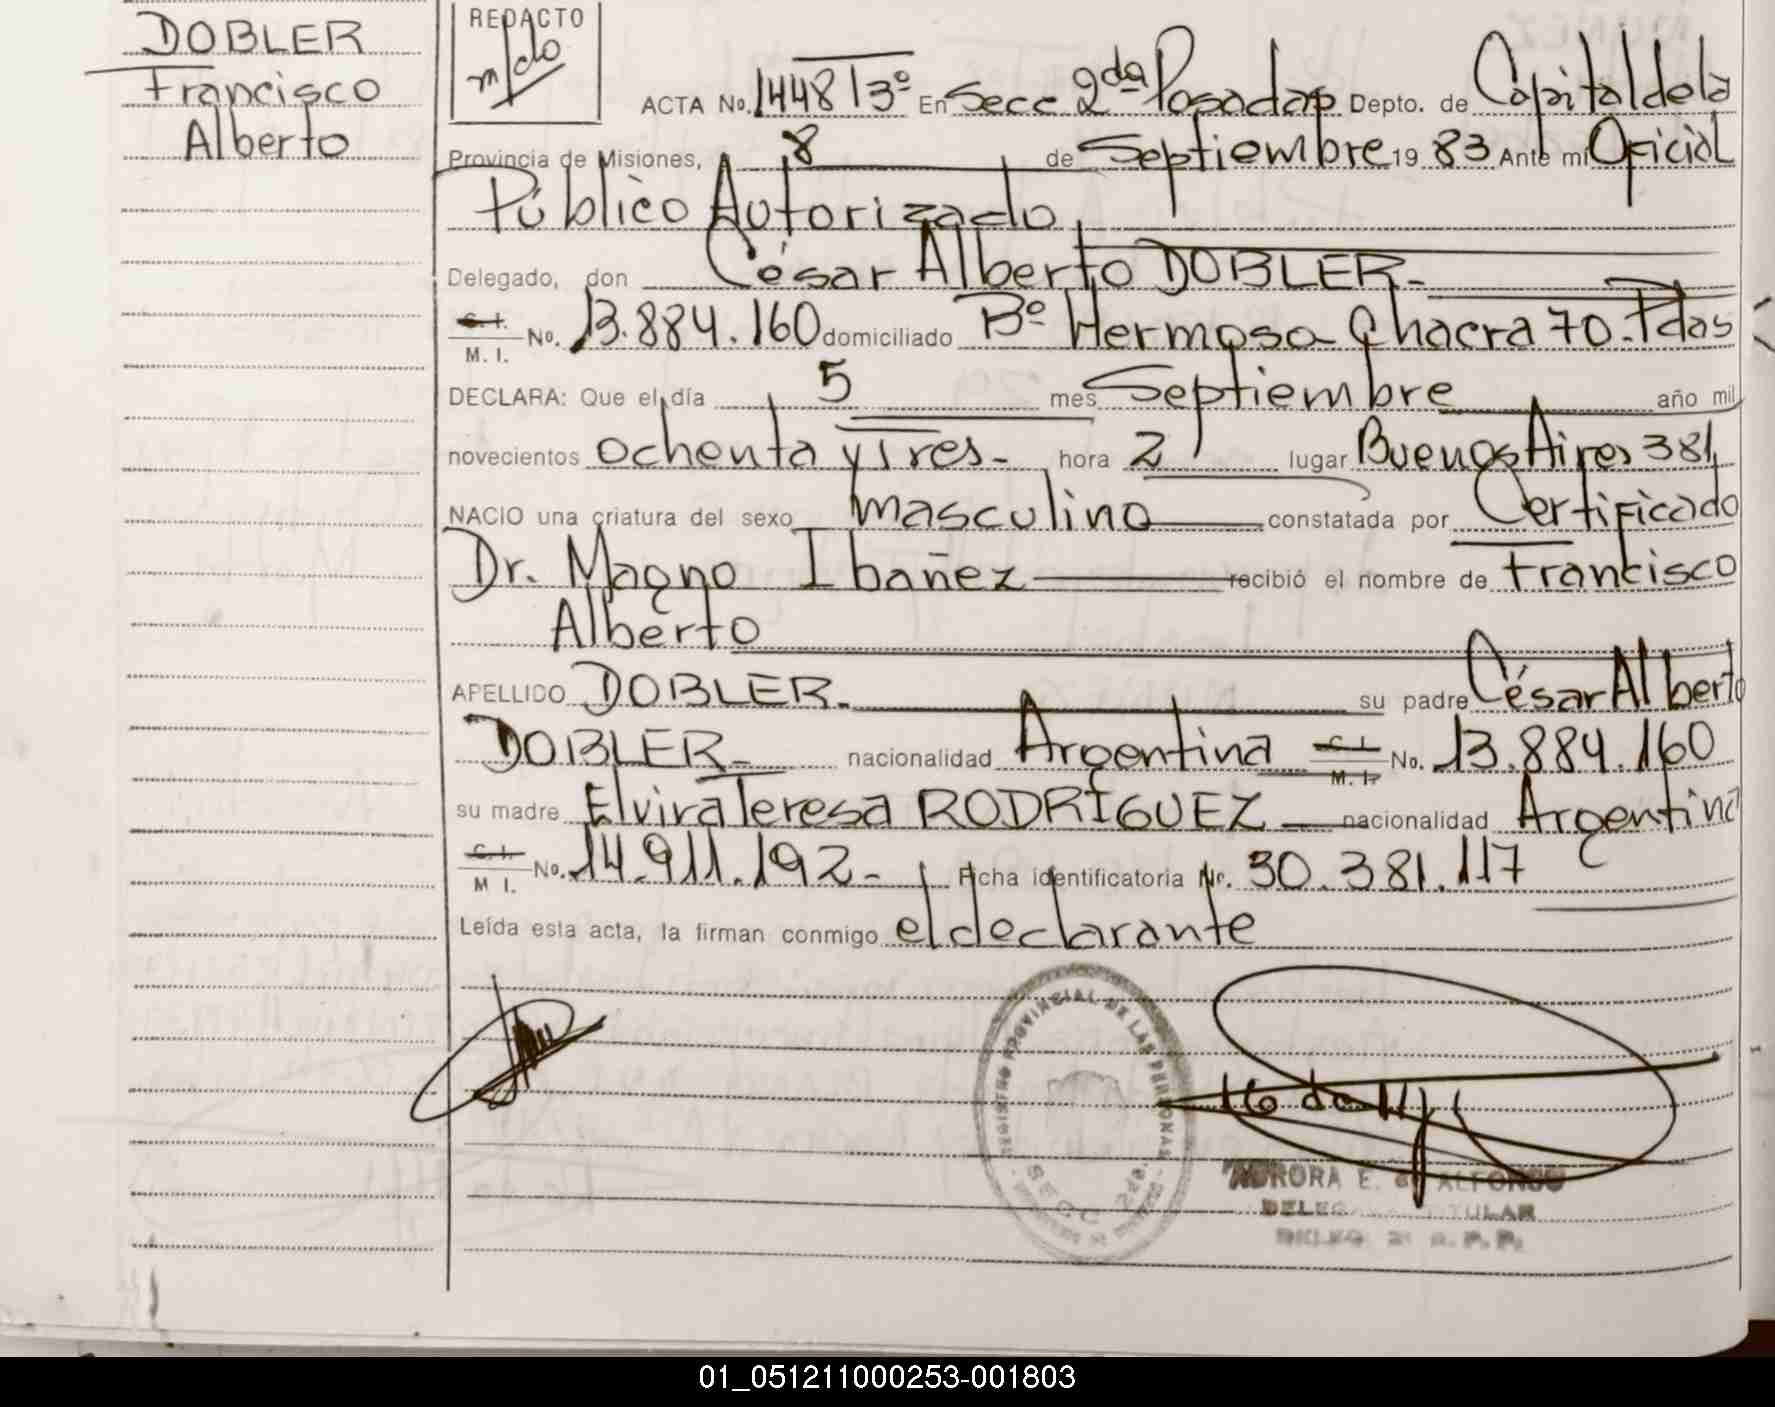 DOBLER
Francisco
Alberto
REDACTO
ACTA No. 1448 T3º En Secc 2da Posadas Depto. de Capital de la
Provincia de Misiones, A 8 de Septiembre 19 83 Ante mi Oficial
Público Autorizado
Delegado, don César Alberto DOBLER.-
C. I. M. I. No. 13.884.160 domiciliado Bº Hermoso Chacra 70. Pdas
DECLARA: Que el día 5 mes Septiembre año mil
novecientos ochenta y Tres.- hora 2 lugar Buenos Aires 381,
NACIO una criatura del sexo masculino constatada por Certificado
Dr. Magno Ibañez recibió el nombre de Francisco
Alberto
APELLIDO DOBLER.- su padre César Alberto
DOBLER.- nacionalidad Argentina C. I. M. I. No. 13.884.160
su madre Elvira Teresa RODRIGUEZ nacionalidad Argentina
C. I. M I. No. 14.911.192.- Ficha identificatoria Nr. 30.381.117
Leída esta acta, la firman conmigo el declarante
REGISTRO PROVINCIAL DE LAS PERSONAS
SECC 2da.
AURORA E. de ALFONSO
TULAR
01_051211000253-001803